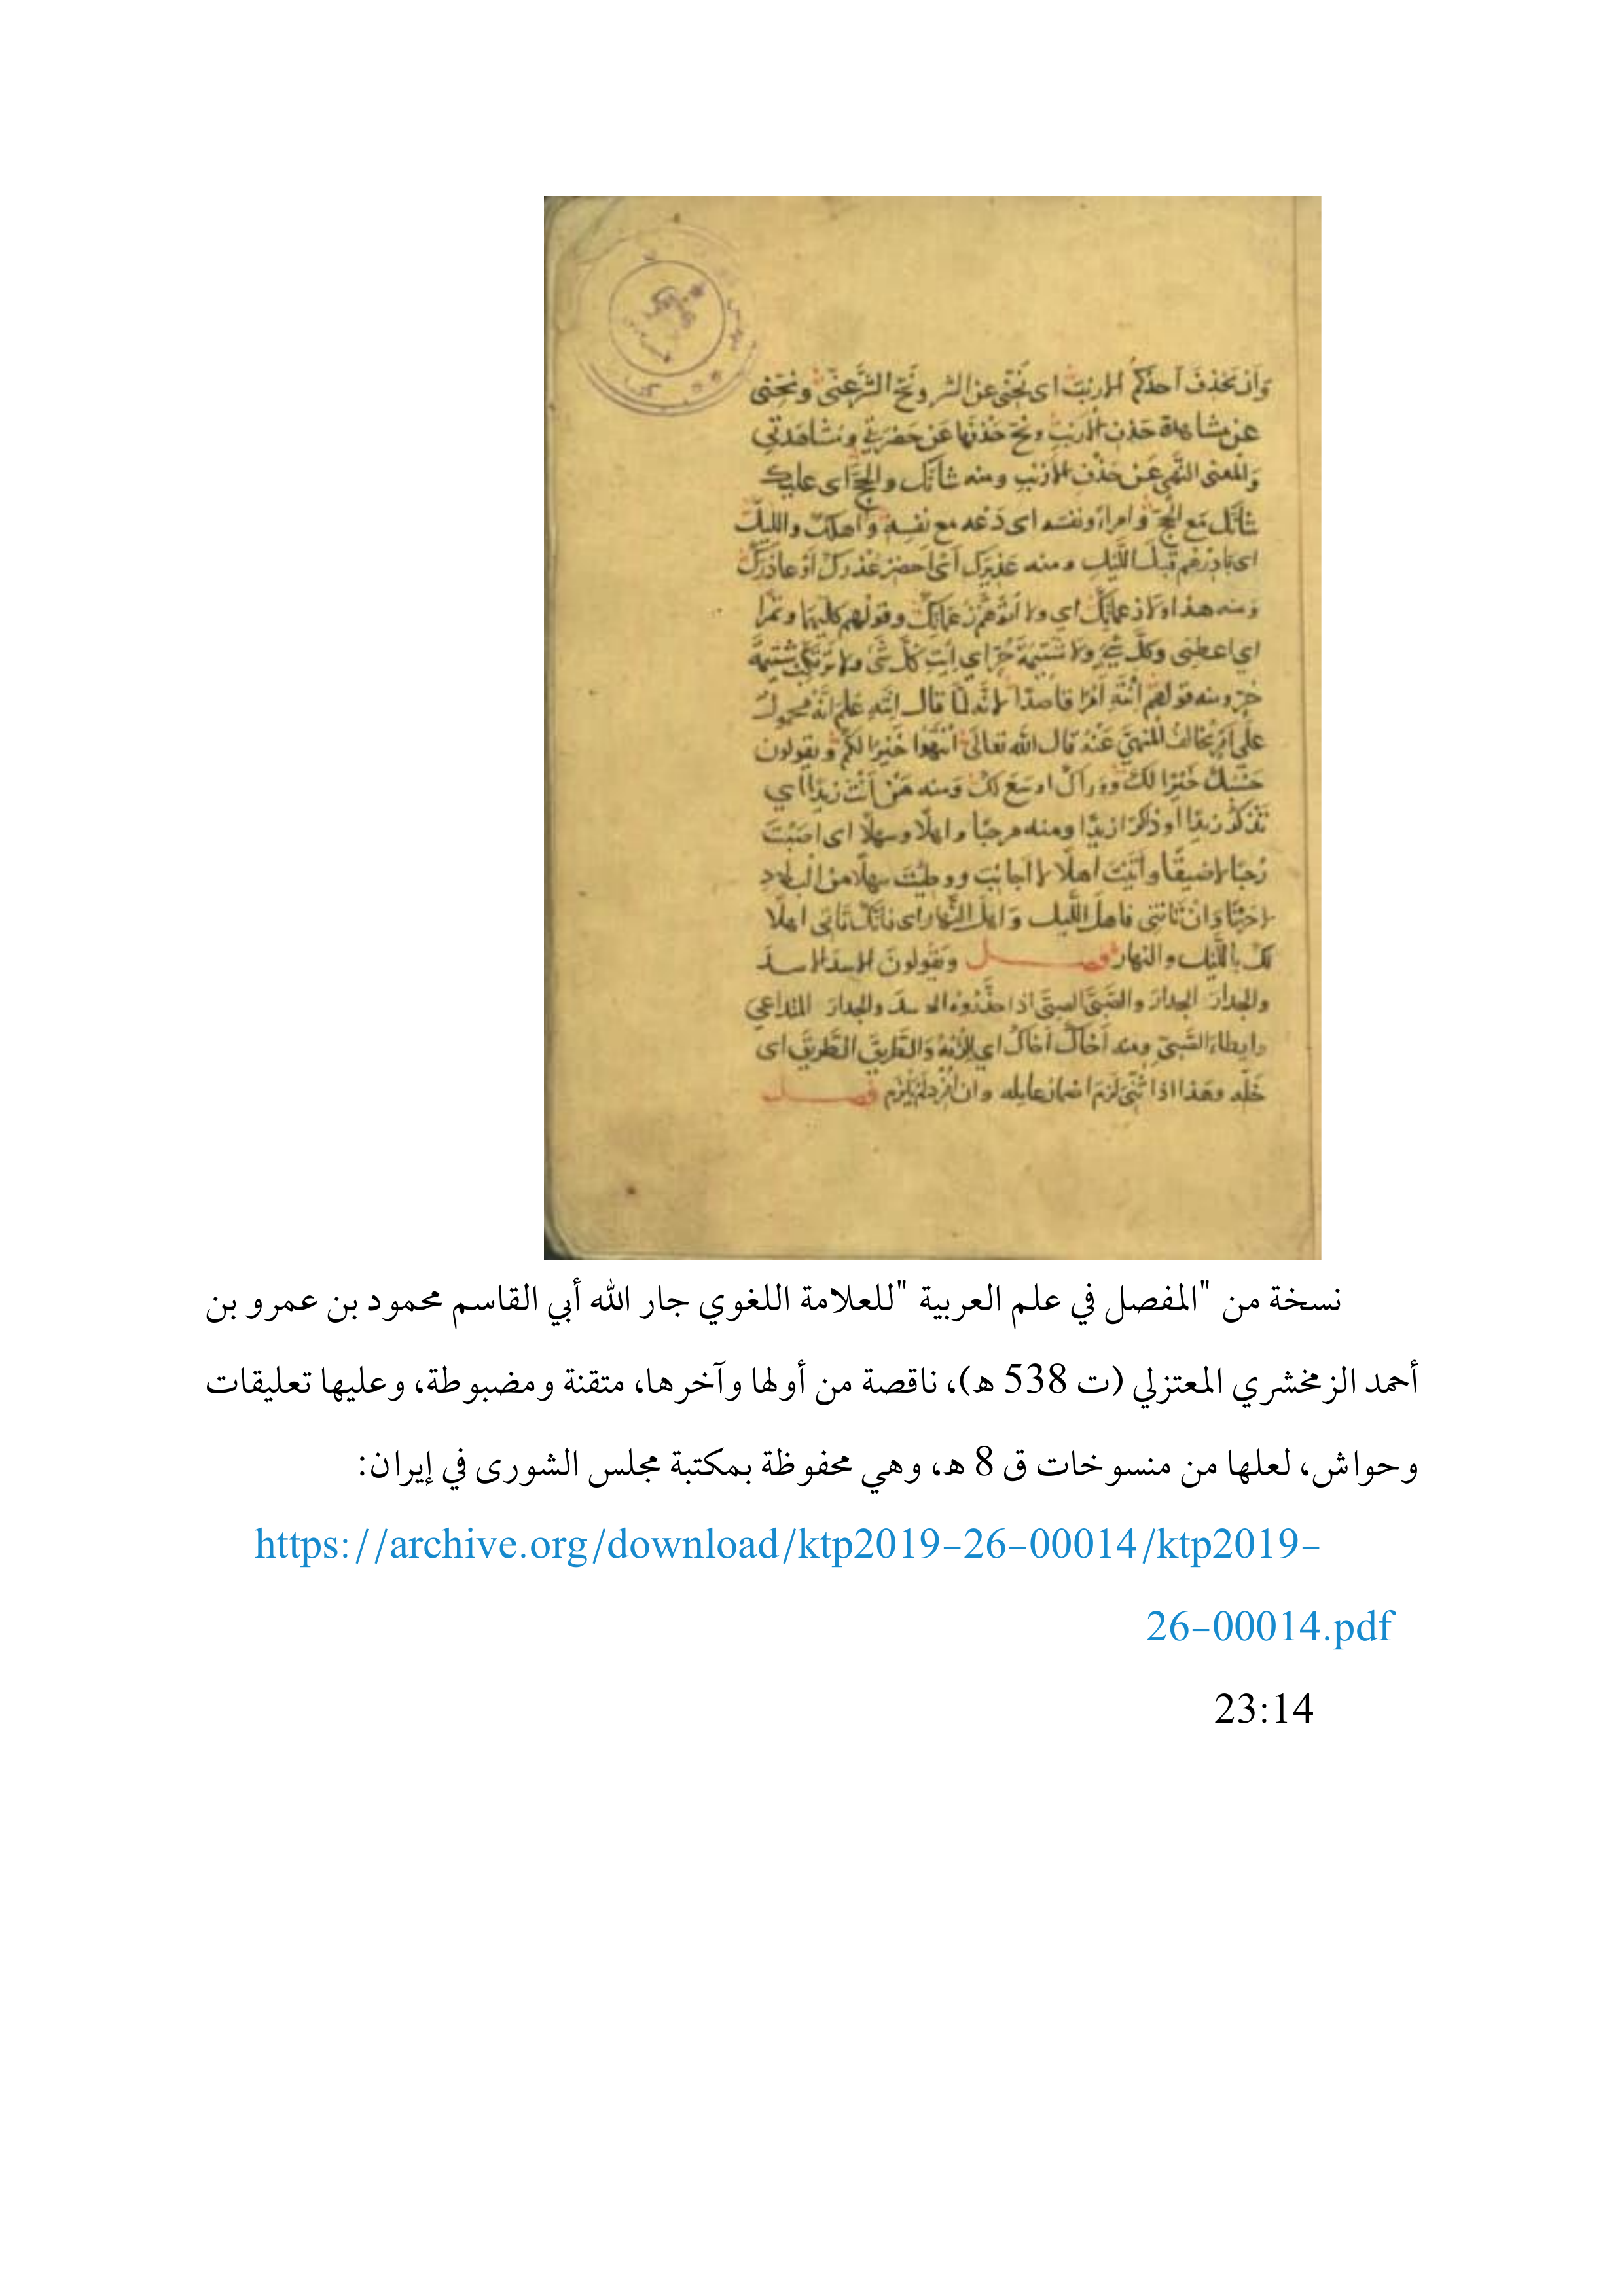 وَاَنْ يَحْذِفَ اَحَدُكُم الارْنَبَ اى نَحِّنى عن الشر ونَحِّ الشَّرَّ عَنّى ونَحِّنى
عن مشاهدة حذف الارنب ونَحِّ حَذْفَها عَن حَضْرَتى ومُشاهَدتى
وَالمعنى النَّهى عَن حَذْفِ الارنب ومنه شأنَك والحجَّ اى عليك
شأنَك مَع الحجّ وامرأً ونفسَه اى دَعْه مع نفسِه وَاهلَك والليلَ
اى بَادِرْهم قبلَ اللَّيل ومنه عَذِيرَك اى اَحضِر عُذْرَك اَوْ عاذِرَك
ومنه هذا ولا زعماتِك اي ولا اتوهّم زعماتِك وقولهم كليهما وتمرا
اي اعطنى وكلَّ شئ ولا شَتِيمَةَ حُرّ اي اِيتِ كلَّ شئ ولا تَرْتكِب شَتِيمَةَ
حُرّ ومنه قولهم اِنْتَهِ اَمْرًا قاصدًا لانّه لمّا قال اِنْتَهِ عُلِمَ اَنَّه محمولٌ
على اَمْرٍ يُخالف المَنهِىَّ عَنْه قال الله تعالى اِنْتَهُوا خَيْرًا لكُم ويقولون
حَسْبُكَ خَيْرًا لكَ ووراكَ اوسَعَ لك وَمنه مَنْ اَنْتَ زيدًا اي
تَذْكُرُ زيدًا اَوْ ذاكرًا زيدًا ومنه مرحبًا واهلًا وسهلًا اى اصَبْتَ
رُحْبًا لا ضِيقًا وأتَيْتَ اهلًا لا اجانِبَ ووطِئتَ سهلًا من البلاد
لا حَزْنًا وَاِنْ تَأتنى فاهلَ اللَّيل وَاهلَ النَّهار اى فانّك تَأتى اهلًا
لك باللَّيل والنهار فصل ويقولونَ الاسدَ الاسدَ
والجدارَ الجدارَ والصَّبىَّ الصبىَّ اذا حَذَّرُوهُ الاسدَ والجدارَ المتداعي
وايطاءَ الصَّبىّ ومنه اَخاكَ اَخاكَ اي اِلْزَمْهُ وَالطَّريقَ الطَّريقَ اى
خَلِّه وهَذا اذا ثُنّىَ لَزِمَ اضمارُ عامِله وان اُفْرِدَ لَمْ يَلْزم فصل
نسخة من "المفصل في علم العربية "للعلامة اللغوي جار الله أبي القاسم محمود بن عمرو بن
أحمد الزمخشري المعتزلي (ت 538 ه)، ناقصة من أولها وآخرها، متقنة ومضبوطة، وعليها تعليقات
وحواش، لعلها من منسوخات ق 8 ه، وهي محفوظة بمكتبة مجلس الشورى في إيران:
https://archive.org/download/ktp2019-26-00014/ktp2019-
26-00014.pdf
23:14